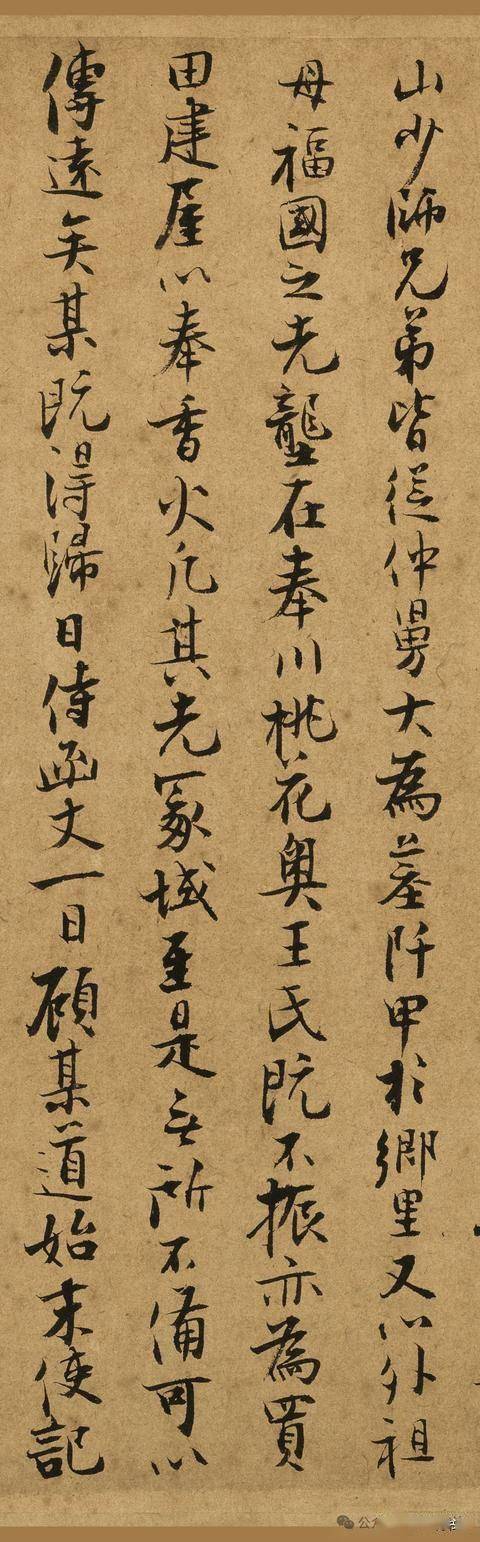 山少師兄弟皆從仲舅大為墓阡甲於鄉里又以外祖
母福國之先壟在奉川桃花奥王氏既不振亦為買
田建屋以奉香火凡其先冢域至是无所不備可以
傳遠矣某既得歸日侍函丈一日顧某道始末使記
公众